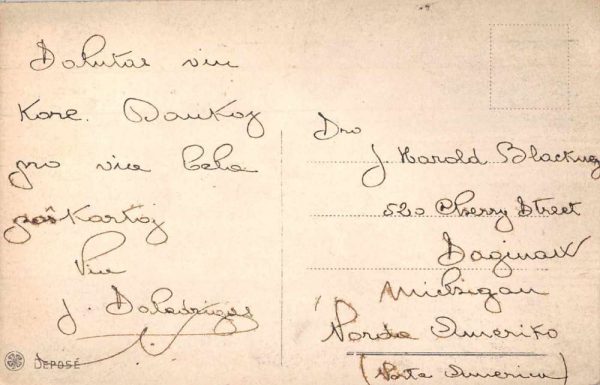 Salutas vin
Kore. Dankoj
pro via bela
poŝkartoj
Via
J.
DEPOSÉ
Sro
J. Harold Blackney
520 Cherry Street
Saginaw
Michigan
Norda Ameriko
(Norte America)